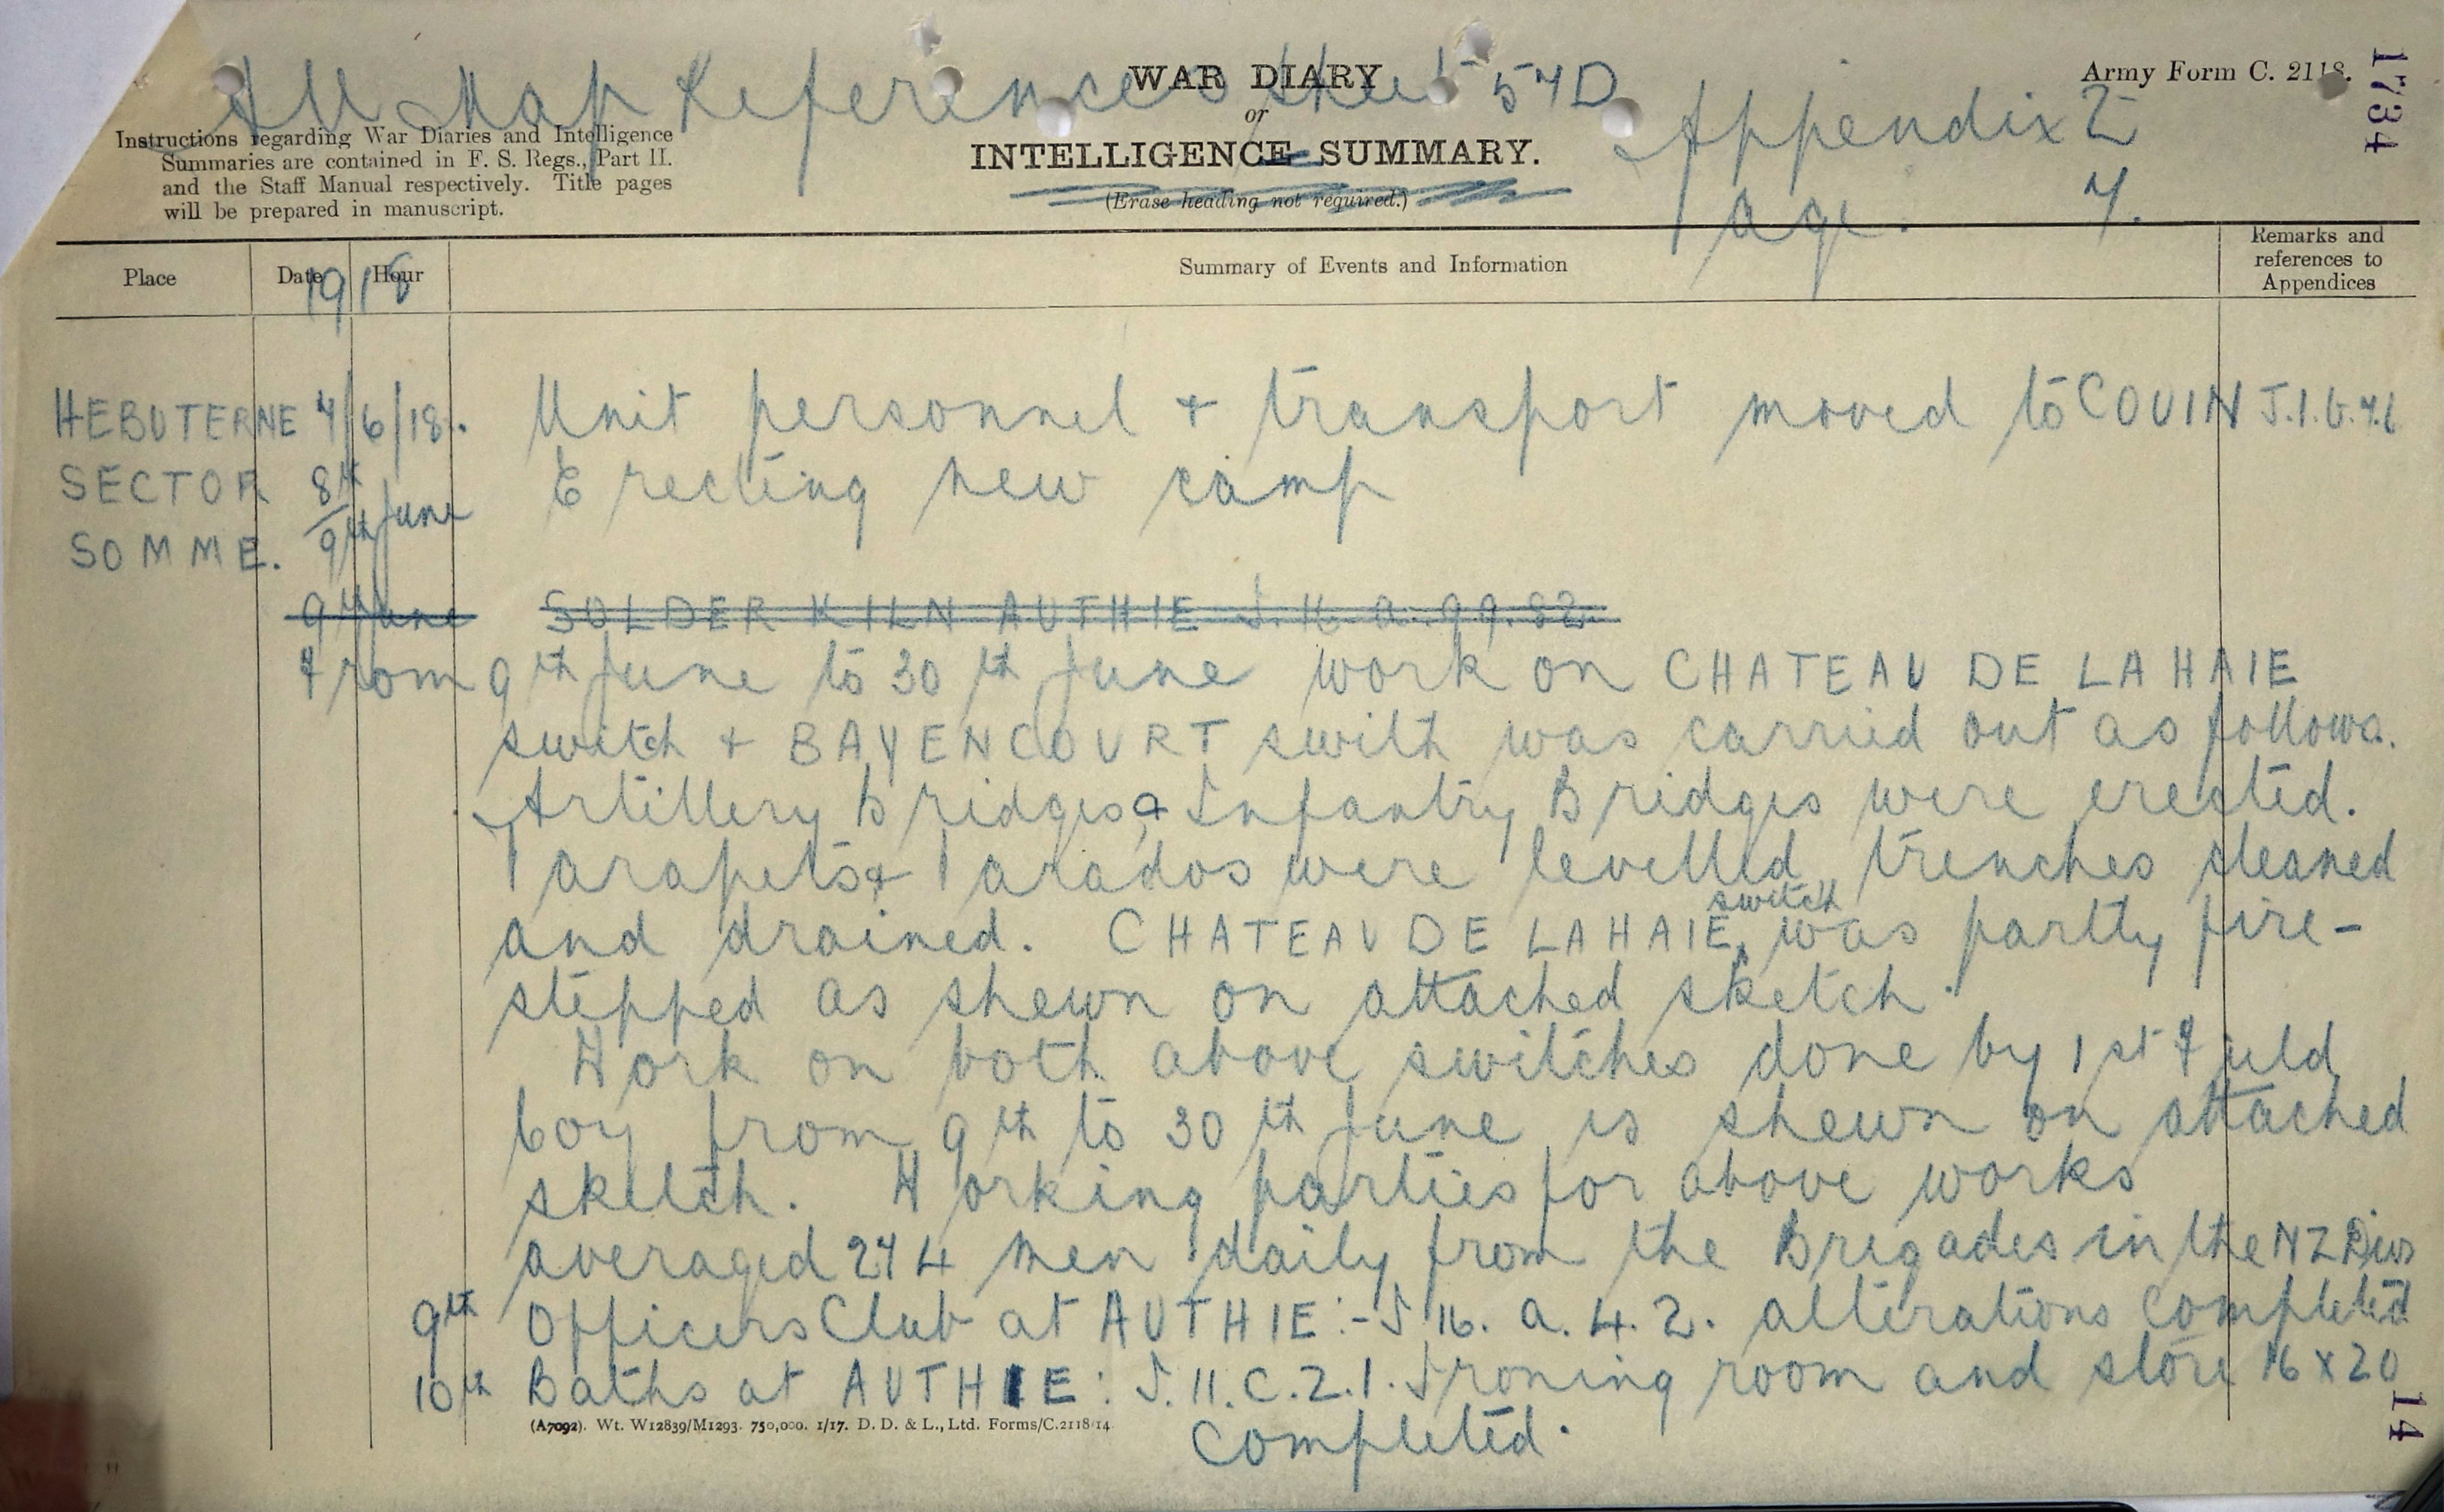 All Map References Sheet 57D
WAR DIARY
or
INTELLIGENCE SUMMARY.
(Erase heading not required.)
Army Form C. 2118.
1734
Instructions regarding War Diaries and Intelligence
Summaries are contained in F. S. Regs., Part II.
and the Staff Manual respectively. Title pages
will be prepared in manuscript.
Appendix 2
Page. 7.
Place
Date
Hour
1918
Summary of Events and Information
Remarks and
references to
Appendices
HEBUTERNE 7/6/18. Unit personnel + transport moved to COUIN J.1.b.7.6
SECTOR 8th Erecting new camp
SOMME. 9th June
9th June SOLDER KILN AUTHIE J.16.a.99.82.
From 9th June to 30th June work on CHATEAU DE LA HAIE
switch + BAYENCOURT swith was carried out as follows.
Artillery Bridges & Infantry Bridges were erected.
Parapets & Parados were levelled, trenches cleaned
and drained. CHATEAU DE LA HAIE switch was partly fire-
stepped as shewn on attached sketch.
Work on both above switches done by 1st Field
Coy from 9th to 30th June is shewn on attached
sketch. Working parties for above works
averaged 274 men daily from the Brigades in the NZ Divs
9th Officers Club at AUTHIE:- J.16. a. 4. 2. alterations completed
10th Baths at AUTHIE: J.11.C.2.1. Ironing room and store 16 x 20
completed.
(A7092). Wt. W12839/M1293. 750,000. 1/17. D. D. & L., Ltd. Forms/C.2118/14.
14